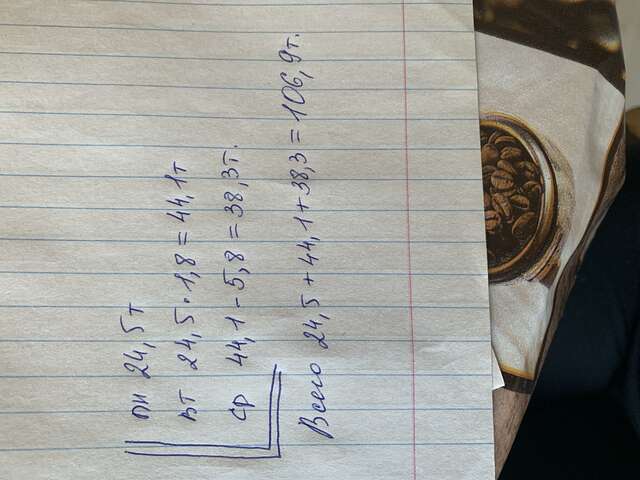 пн 24,5т
вт 24,5·1,8=44,1т
ср 44,1-5,8=38,3т.
Всего 24,5+44,1+38,3=106,9т.